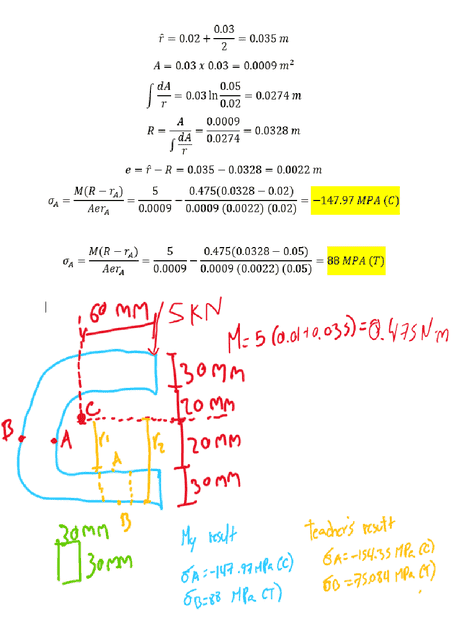 r̂ = 0.02 + 0.03/2 = 0.035 m
A = 0.03 x 0.03 = 0.0009 m²
∫ dA/r = 0.03 ln 0.05/0.02 = 0.0274 m
R = A/∫dA/r = 0.0009/0.0274 = 0.0328 m
e = r̂ − R = 0.035 − 0.0328 = 0.0022 m
σA = M(R − rA)/AerA = 5/0.0009 − 0.475(0.0328 − 0.02)/0.0009 (0.0022) (0.02) = −147.97 MPA (C)
σA = M(R − rA)/AerA = 5/0.0009 − 0.475(0.0328 − 0.05)/0.0009 (0.0022) (0.05) = 88 MPA (T)
60 MM
5KN
30MM
C
20 MM
B
A
r1
r2
20MM
A
30MM
B
30MM
30MM
My result
σA=-147.97MPa(C)
σB=88 MPa (T)
Teacher's result
σA=-154.35 MPa (C)
σB = 75.084 MPa (T)